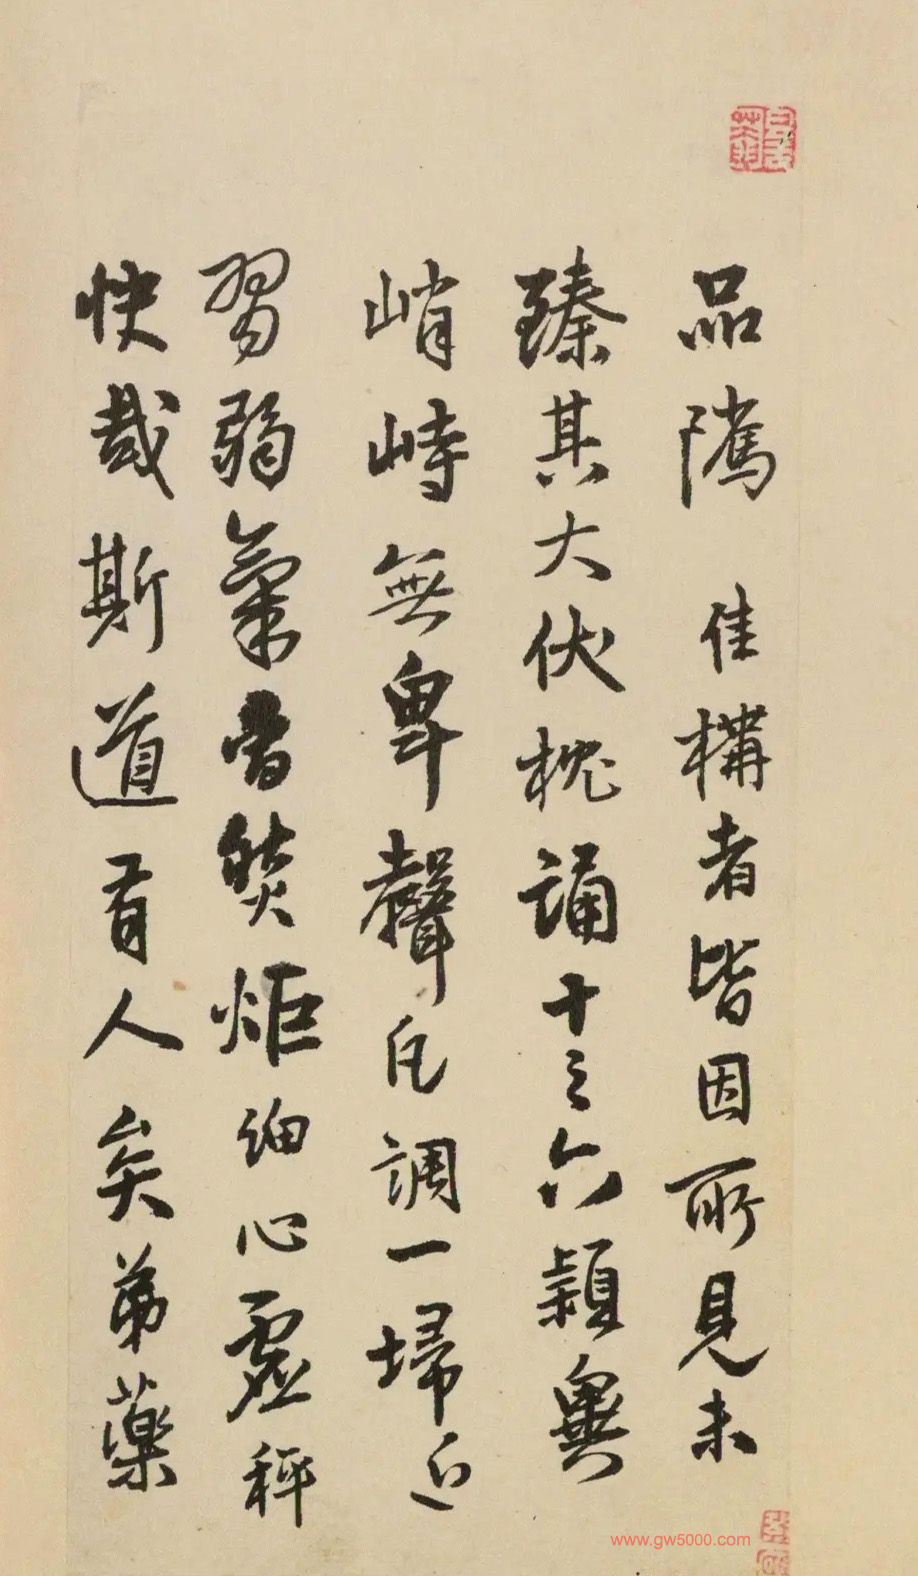 品隲 佳構者皆因所見未
臻其大伏枕誦十之六穎異
峭峙無卑聲凡調一埽近
習弱氣晉焚炬細心虛秤
快哉斯道有人矣弟藥
www.gw5000.com